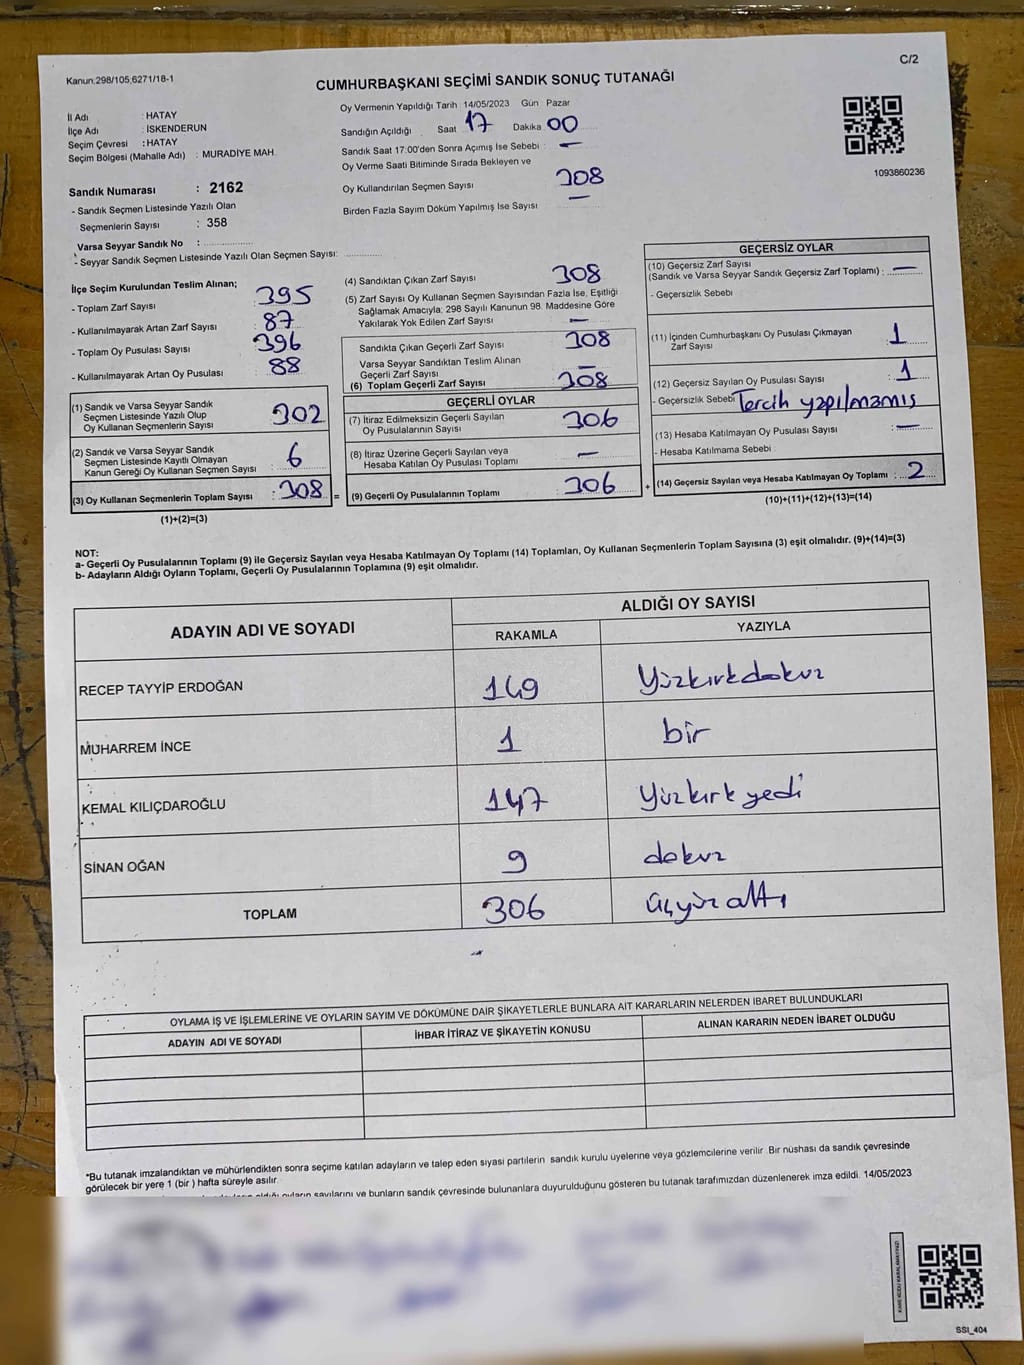 Kanun:298/105,6271/18-1
C/2
CUMHURBAŞKANI SEÇİMİ SANDIK SONUÇ TUTANAĞI
İl Adı : HATAY
İlçe Adı : İSKENDERUN
Seçim Çevresi : HATAY
Seçim Bölgesi (Mahalle Adı) : MURADİYE MAH.
Sandık Numarası : 2162
- Sandık Seçmen Listesinde Yazılı Olan
Seçmenlerin Sayısı : 358
Varsa Seyyar Sandık No :
- Seyyar Sandık Seçmen Listesinde Yazılı Olan Seçmen Sayısı:
Oy Vermenin Yapıldığı Tarih 14/05/2023 Gün Pazar
Sandığın Açıldığı Saat 17 Dakika 00
Sandık Saat 17:00'den Sonra Açımış İse Sebebi : —
Oy Verme Saati Bitiminde Sırada Bekleyen ve
Oy Kullandırılan Seçmen Sayısı 308
Birden Fazla Sayım Döküm Yapılmış İse Sayısı —
1093860236
İlçe Seçim Kurulundan Teslim Alınan;
- Toplam Zarf Sayısı 395
- Kullanılmayarak Artan Zarf Sayısı 87
- Toplam Oy Pusulası Sayısı 396
- Kullanılmayarak Artan Oy Pusulası 88
(1) Sandık ve Varsa Seyyar Sandık
Seçmen Listesinde Yazılı Olup
Oy Kullanan Seçmenlerin Sayısı 302
(2) Sandık ve Varsa Seyyar Sandık
Seçmen Listesinde Kayıtlı Olmayan
Kanun Gereği Oy Kullanan Seçmen Sayısı 6
(3) Oy Kullanan Seçmenlerin Toplam Sayısı : 308 =
(1)+(2)=(3)
(4) Sandıktan Çıkan Zarf Sayısı 308
(5) Zarf Sayısı Oy Kullanan Seçmen Sayısından Fazla İse, Eşitliği
Sağlamak Amacıyla; 298 Sayılı Kanunun 98. Maddesine Göre
Yakılarak Yok Edilen Zarf Sayısı —
Sandıkta Çıkan Geçerli Zarf Sayısı 308
Varsa Seyyar Sandıktan Teslim Alınan
Geçerli Zarf Sayısı —
(6) Toplam Geçerli Zarf Sayısı 308
GEÇERLİ OYLAR
(7) İtiraz Edilmeksizin Geçerli Sayılan
Oy Pusulalarının Sayısı 306
(8) İtiraz Üzerine Geçerli Sayılan veya
Hesaba Katılan Oy Pusulası Toplamı —
(9) Geçerli Oy Pusulalarının Toplamı 306 +
GEÇERSİZ OYLAR
(10) Geçersiz Zarf Sayısı
(Sandık ve Varsa Seyyar Sandık Geçersiz Zarf Toplamı) : —
- Geçersizlik Sebebi
(11) İçinden Cumhurbaşkanı Oy Pusulası Çıkmayan
Zarf Sayısı 1
(12) Geçersiz Sayılan Oy Pusulası Sayısı 1
- Geçersizlik Sebebi Tercih yapılmamış
(13) Hesaba Katılmayan Oy Pusulası Sayısı : —
- Hesaba Katılmama Sebebi
(14) Geçersiz Sayılan veya Hesaba Katılmayan Oy Toplamı : 2
(10)+(11)+(12)+(13)=(14)
NOT:
a- Geçerli Oy Pusulalarının Toplamı (9) ile Geçersiz Sayılan veya Hesaba Katılmayan Oy Toplamı (14) Toplamları, Oy Kullanan Seçmenlerin Toplam Sayısına (3) eşit olmalıdır. (9)+(14)=(3)
b- Adayların Aldığı Oyların Toplamı, Geçerli Oy Pusulalarının Toplamına (9) eşit olmalıdır.
ADAYIN ADI VE SOYADI
ALDIĞI OY SAYISI
RAKAMLA YAZIYLA
RECEP TAYYİP ERDOĞAN 149 Yüzkırkdokuz
MUHARREM İNCE 1 bir
KEMAL KILIÇDAROĞLU 147 Yüzkırkyedi
SİNAN OĞAN 9 dokuz
TOPLAM 306 üçyüzaltı
OYLAMA İŞ VE İŞLEMLERİNE VE OYLARIN SAYIM VE DÖKÜMÜNE DAİR ŞİKAYETLERLE BUNLARA AİT KARARLARIN NELERDEN İBARET BULUNDUKLARI
ADAYIN ADI VE SOYADI İHBAR İTİRAZ VE ŞİKAYETİN KONUSU ALINAN KARARIN NEDEN İBARET OLDUĞU
*Bu tutanak imzalandıktan ve mühürlendikten sonra seçime katılan adayların ve talep eden siyasi partilerin sandık kurulu üyelerine veya gözlemcilerine verilir. Bir nüshası da sandık çevresinde
görülecek bir yere 1 (bir) hafta süreyle asılır.
aldığı oyların sayılarını ve bunların sandık çevresinde bulunanlara duyurulduğunu gösteren bu tutanak tarafımızdan düzenlenerek imza edildi. 14/05/2023
SSI_404